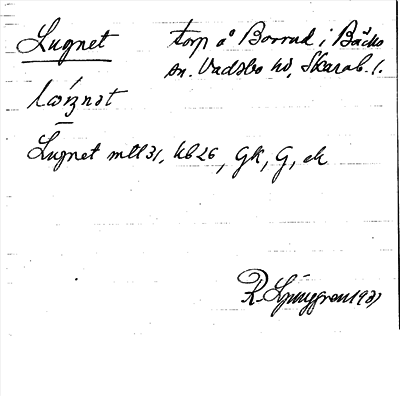 Lugnet torp å Borrud i Bäcks
sn. Vadsbo hd, Skarab. l.
Lugnet mtl 31, hb 26, GK, G, ek
R. Ljunggren 1931